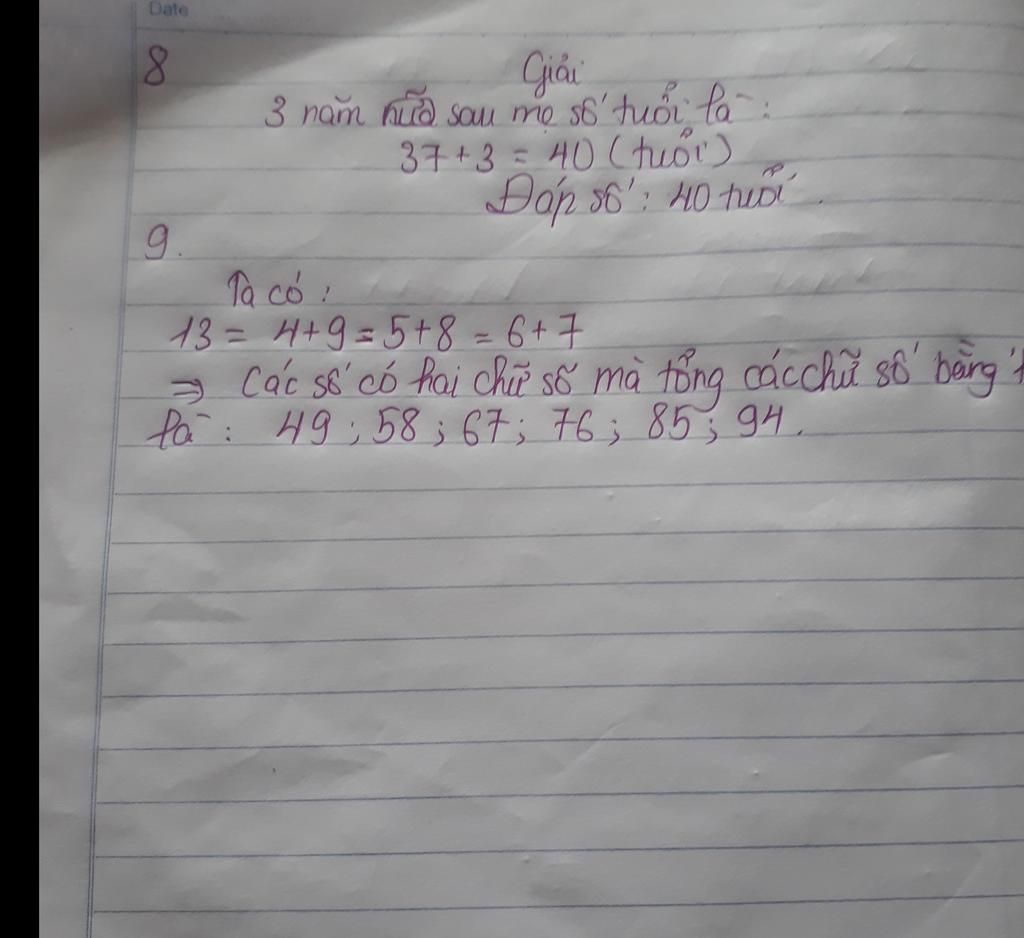 Date
8
Giải
3 năm nữa sau mẹ số tuổi là:
37+3 = 40 (tuổi)
Đáp số: 40 tuổi.
9.
Ta có:
13 = 4+9 = 5+8 = 6+7
⇒ Các số có hai chữ số mà tổng các chữ số bằng
là: 49; 58; 67; 76; 85; 94.